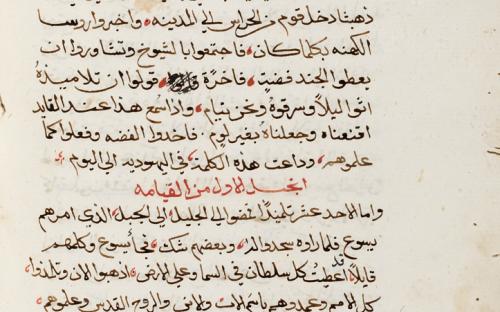 ذهبتا دخل قوم من الحراس الي المدينه واخبروا روسا
الكهنه بكلما كان فاجتمعوا بالشيوخ وتشاوروا ان
يعطوا الجند فضتٍ فاخرة قولوا ان تلاميذهُ
اتوا ليلاً وسرقوهُ ونحن نيام واذا سمع هذا عند القايد
اقنعناه وجعلناه بغير لوم فاخدوا الفضه وفعلوا كما
علموهم وداعت هذه الكلمة في اليهودية الي اليوم
الانجيل الاول من القيامه
واما الاحد عشر تلميذاً فمضوا الي الجليل الي الجبل الذي امرهم
يسوع فلما راوه سجدوا له وبعضهم شك فجا يسوع وكلمهم
قايلاً قد اعطيتُ كل سلطان في السما وعلي الارض اذهبوا الان وتلمذوا
كل الامم وعمدوهم باسم الاب والابن والروح القدس وعلموهم